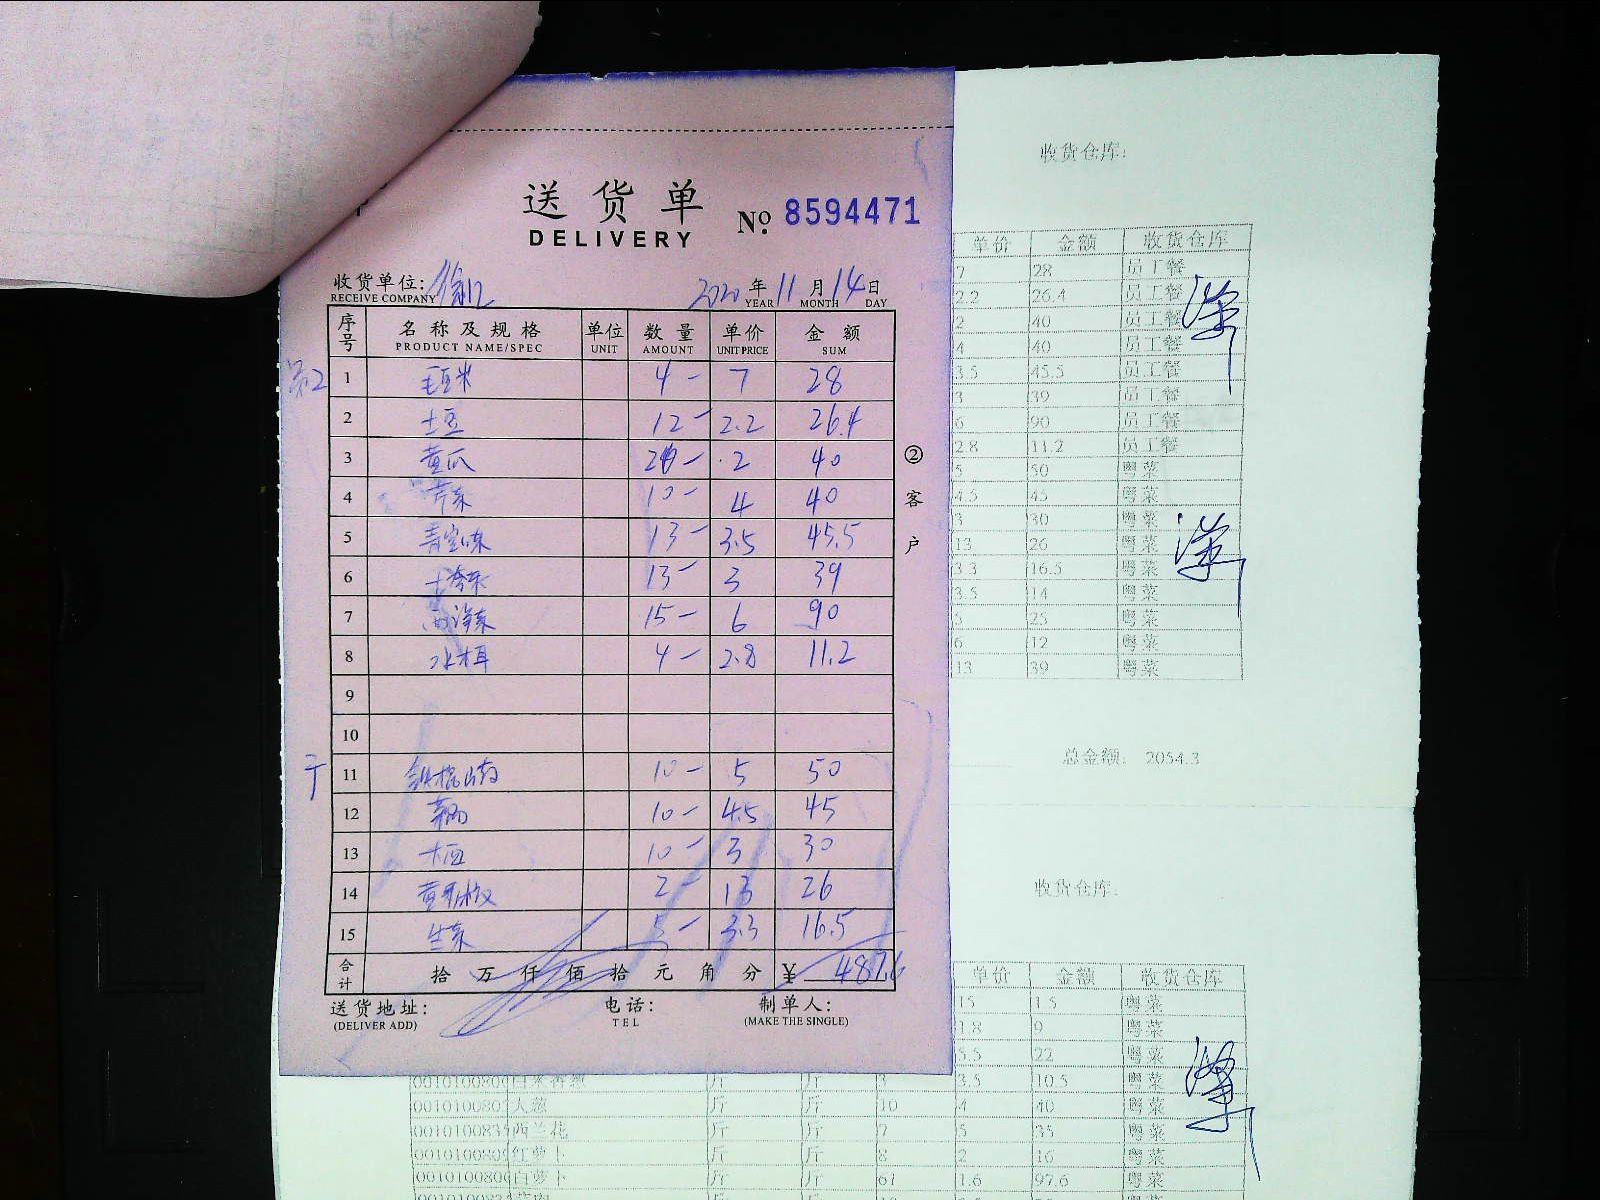 送货单
DELIVERY
№ 8594471
收货单位:
RECEIVE COMPANY
2020 年 11 月 14 日
YEAR MONTH DAY
序号 名称及规格 单位 数量 单价 金额
PRODUCT NAME/SPEC UNIT AMOUNT UNIT PRICE SUM
1 毛豆米 4- 7 28
2 土豆 12- 2.2 26.4
3 黄瓜 20- 2 40
4 芹菜 10- 4 40
5 13- 3.5 45.5
6 13- 3 39
7 15- 6 90
8 4- 2.8 11.2
9
10
11 铁棍山药 10- 5 50
12 10- 4.5 45
13 10- 3 30
14 2- 13 26
15 生菜 5- 3.3 16.5
合计 拾 万 仟 佰 拾 元 角 分 ¥ 487.6
送货地址: 电话: 制单人:
(DELIVER ADD) TEL (MAKE THE SINGLE)
②客户
收货仓库:
单价 金额 收货仓库
7 28 员工餐
2.2 26.4 员工餐
2 40 员工餐
4 40 员工餐
3.5 45.5 员工餐
3 39 员工餐
6 90 员工餐
2.8 11.2 员工餐
5 50 粤菜
4.5 45 粤菜
3 30 粤菜
13 26 粤菜
3.3 16.5 粤菜
3.5 14 粤菜
5 25 粤菜
6 12 粤菜
13 39 粤菜
总金额: 2054.3
收货仓库:
单价 金额 收货仓库
15 1.5 粤菜
1.8 9 粤菜
5.5 22 粤菜
斤 斤 3 3.5 10.5 粤菜
大葱 斤 斤 10 4 40 粤菜
西兰花 斤 斤 7 5 35 粤菜
红萝卜 斤 斤 8 2 16 粤菜
白萝卜 斤 斤 61 1.6 97.6 粤菜